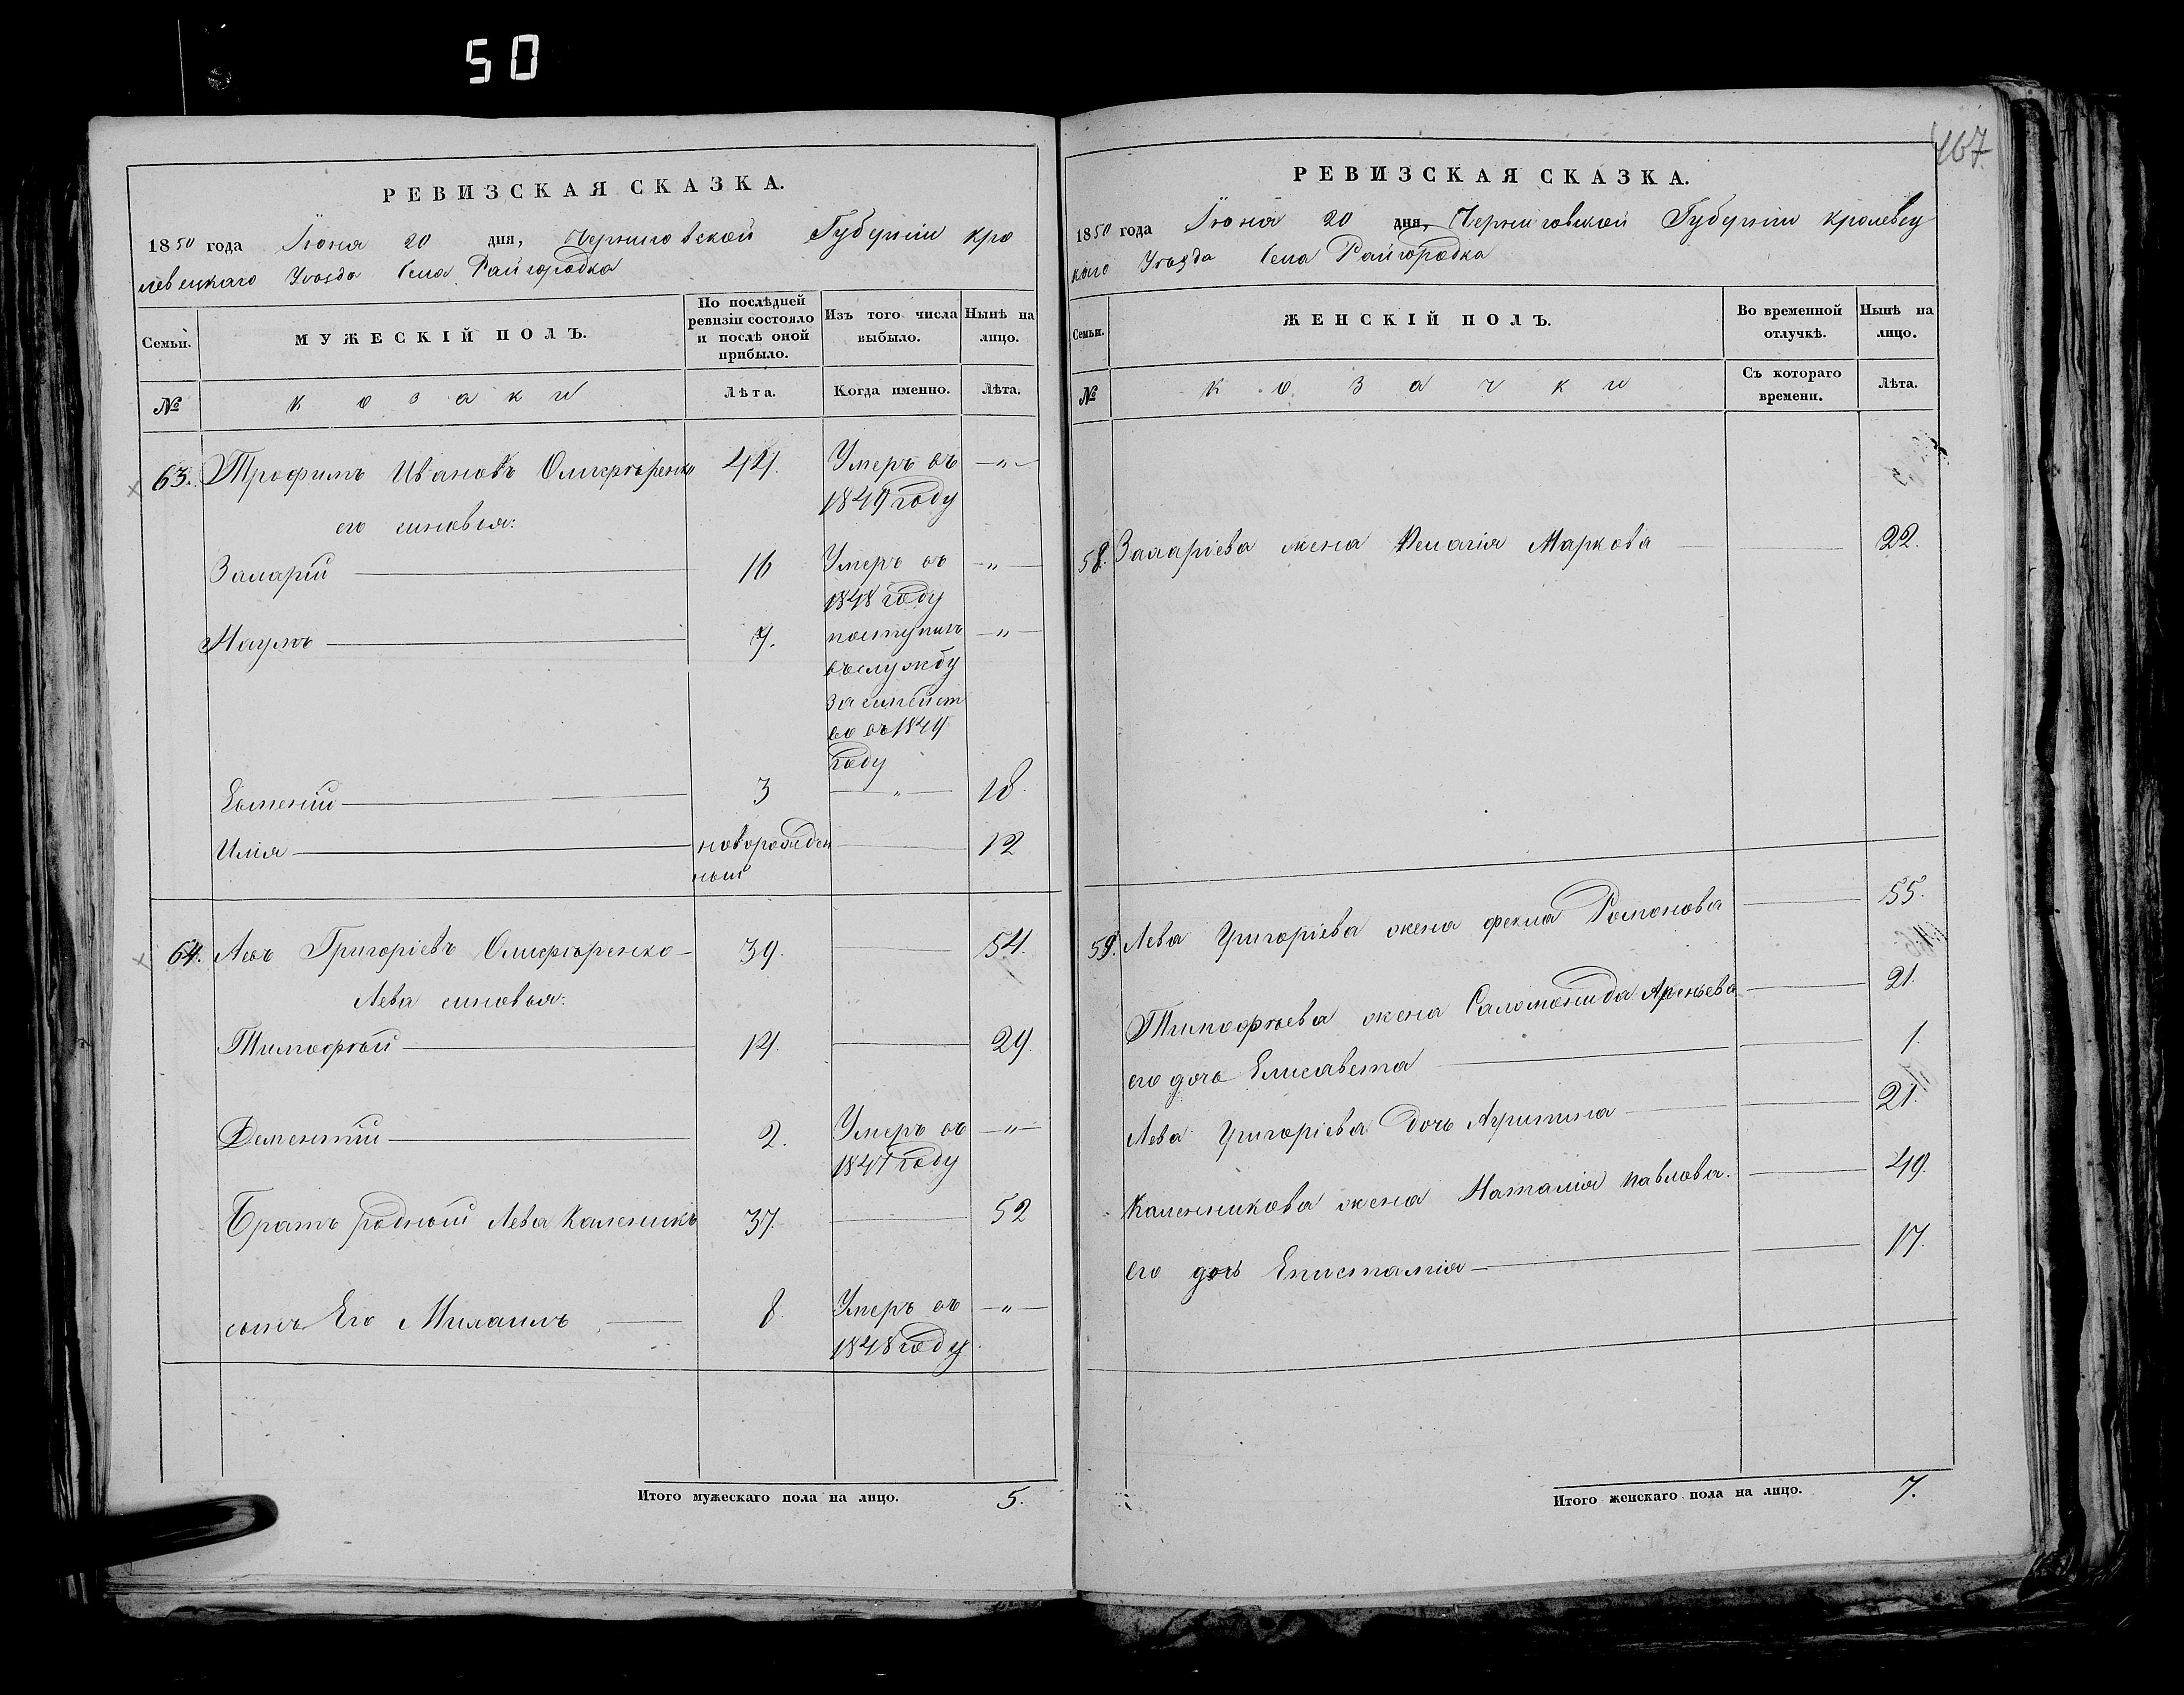 50
167
РЕВИЗСКАЯ СКАЗКА.
1850 года Іюня 20 дня, Черниговской Губерніи кро
левецкаго Уѣзда Села Райгородка
Семьи.
МУЖЕСКІЙ ПОЛЪ.
По послѣдней ревизіи состояло и послѣ оной прибыло.
Изъ того числа выбыло.
Нынѣ на лицо.
№
козаки
Лѣта.
Когда именно.
Лѣта.
63. Трофимъ Ивановъ 44. Умеръ въ —„—
1849 году
его синовья:
Захарій 16 Умеръ въ —„—
1848 году
Наумъ 7. поступилъ —„—
въ службу
за семейст
во въ 1849
году
3 —„— 18.
Илія новорожден 12
ный
64. Левъ Григоріевъ 39. 54.
Лева синовья:
Тимофѣй 14. 29.
Дементій 2. Умеръ въ —„—
1847 году
Братъ родный Лева Каленикъ 37. 52
сынъ Его Михаилъ 8. Умеръ въ —„—
1848 году
Итого мужескаго пола на лицо. 5.
РЕВИЗСКАЯ СКАЗКА.
1850 года Іюня 20 дня, Черниговской Губерніи кролевец
каго Уѣзда Села Райгородка
Семьи.
ЖЕНСКІЙ ПОЛЪ.
Во временной отлучкѣ.
Нынѣ на лицо.
№
козачки
Съ котораго времени.
Лѣта.
58. Захаріева жена Пелагія Маркова 22.
59. Лева Григоріева жена Фекла Романова 55.
Тимофѣева жена Саломонида Арсеньева 21.
его дочь Елисавета 1.
Лева Григоріева дочь 21.
Каленникова жена Наталія Павлова. 49.
Его дочь Епистимія 17.
Итого женскаго пола на лицо. 7.